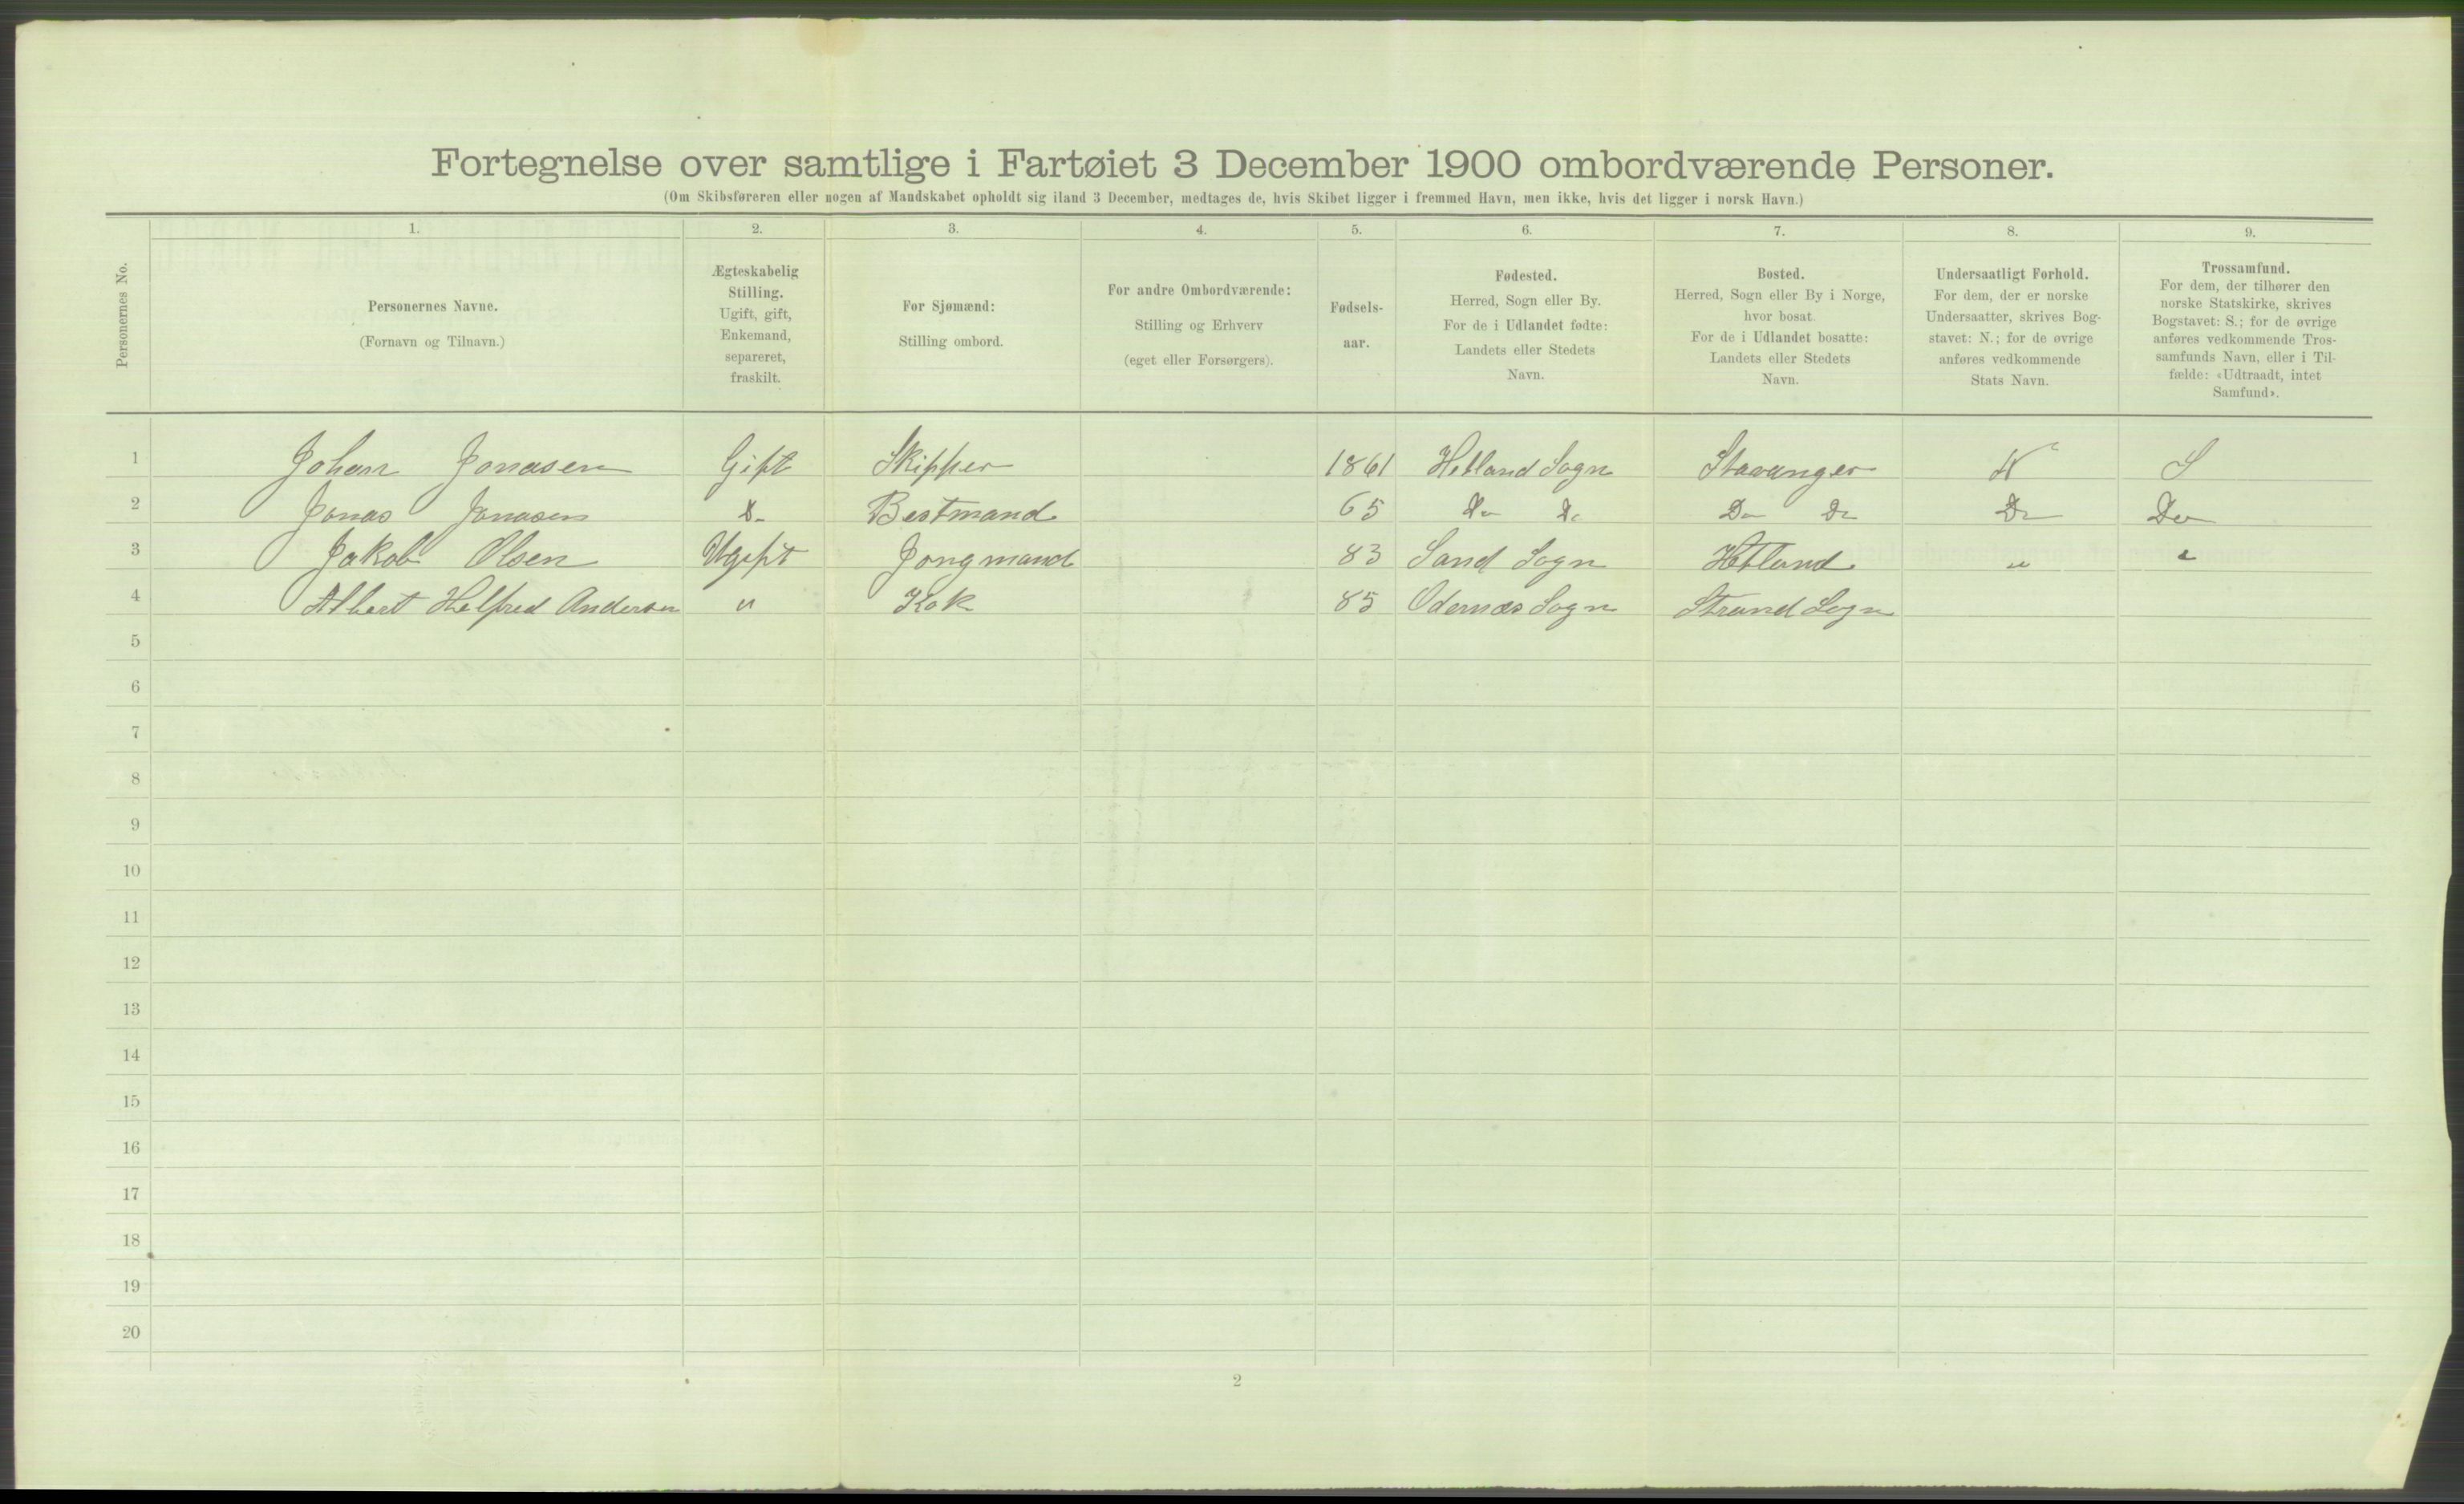 Fortegnelse over samtlige i Fartøiet 3 December 1900 ombordværende Personer.
(Om Skibsføreren eller nogen af Mandskabet opholdt sig iland 3 December, medtages de, hvis Skibet ligger i fremmed Havn, men ikke, hvis det ligger i norsk Havn.)
Personernes No.
1. 2. 3. 4. 5. 6. 7. 8. 9.
Personernes Navne.
(Fornavn og Tilnavn.)
Ægteskabelig
Stilling.
Ugift, gift,
Enkemand,
separeret,
fraskilt.
For Sjømænd:
Stilling ombord.
For andre Ombordværende:
Stilling og Erhverv
(eget eller Forsørgers).
Fødsels-
aar.
Fødested.
Herred, Sogn eller By.
For de i Udlandet fødte:
Landets eller Stedets
Navn.
Bosted.
Herred, Sogn eller By i Norge,
hvor bosat.
For de i Udlandet bosatte:
Landets eller Stedets
Navn.
Undersaatligt Forhold.
For dem, der er norske
Undersaatter, skrives Bog-
stavet: N.; for de øvrige
anføres vedkommende
Stats Navn.
Trossamfund.
For dem, der tilhører den
norske Statskirke, skrives
Bogstavet: S.; for de øvrige
anføres vedkommende Tros-
samfunds Navn, eller i Til-
fælde: «Udtraadt, intet
Samfund».
1 Johan Jonasen Gift Skipper 1861 Hetland Sogn Stavanger N S
2 Jonas Jonasen Do Bestmand 65 Do Do Do Do Do Do
3 Jakob Olsen Ugift Jongmand 83 Sand Sogn Hetland " "
4 Albert Helfred Andersen " Kok 85 Strand Sogn
5
6
7
8
9
10
11
12
13
14
15
16
17
18
19
20
2